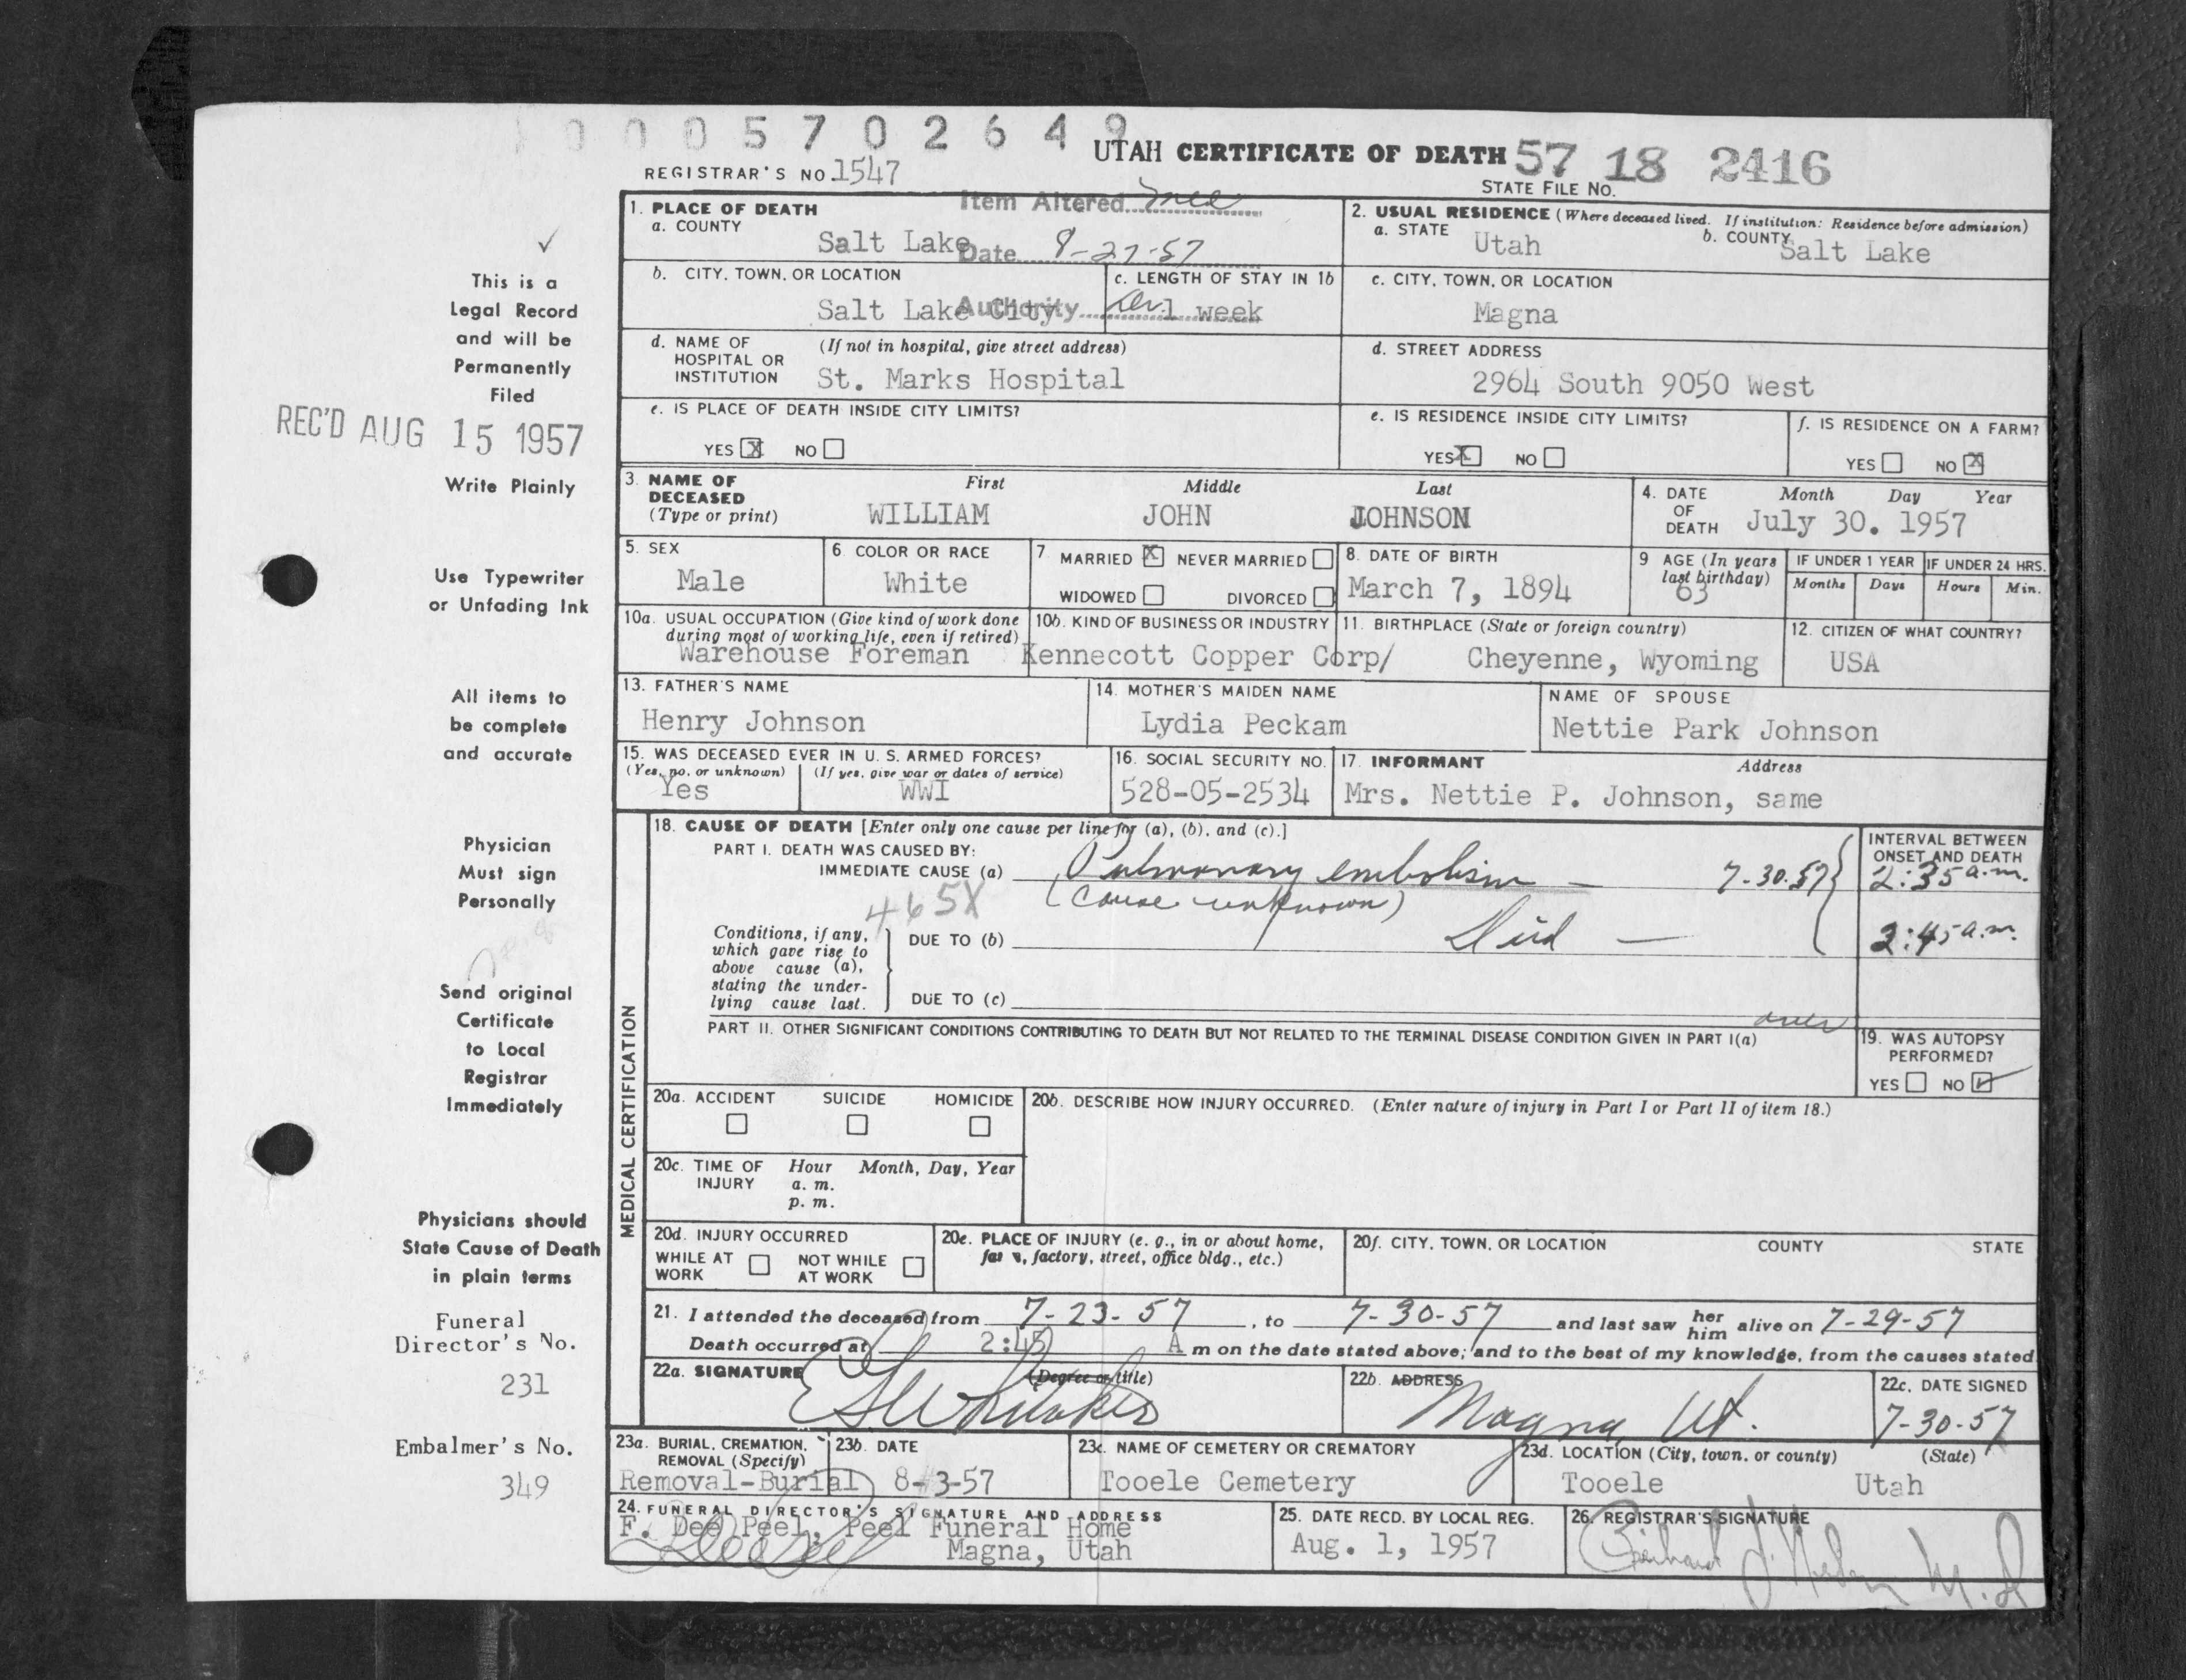 0 0 0 5 7 0 2 6 4 9
UTAH CERTIFICATE OF DEATH 57 18 2416
REGISTRAR'S NO. 1547
STATE FILE NO.
Item Altered
Date 8-27-57
Authority
1. PLACE OF DEATH
a. COUNTY
Salt Lake
2. USUAL RESIDENCE (Where deceased lived. If institution: Residence before admission)
a. STATE Utah b. COUNTY Salt Lake
b. CITY, TOWN, OR LOCATION
Salt Lake City
c. LENGTH OF STAY IN 1b
1 week
c. CITY, TOWN, OR LOCATION
Magna
d. NAME OF HOSPITAL OR INSTITUTION (If not in hospital, give street address)
St. Marks Hospital
d. STREET ADDRESS
2964 South 9050 West
e. IS PLACE OF DEATH INSIDE CITY LIMITS?
YES X NO
e. IS RESIDENCE INSIDE CITY LIMITS?
YES X NO
f. IS RESIDENCE ON A FARM?
YES NO X
3. NAME OF DECEASED (Type or print)
First Middle Last
WILLIAM JOHN JOHNSON
4. DATE OF DEATH Month Day Year
July 30. 1957
5. SEX
Male
6. COLOR OR RACE
White
7. MARRIED X NEVER MARRIED
WIDOWED DIVORCED
8. DATE OF BIRTH
March 7, 1894
9 AGE (In years last birthday)
63
IF UNDER 1 YEAR
Months Days
IF UNDER 24 HRS.
Hours Min.
10a. USUAL OCCUPATION (Give kind of work done during most of working life, even if retired)
Warehouse Foreman
10b. KIND OF BUSINESS OR INDUSTRY
Kennecott Copper Corp/
11. BIRTHPLACE (State or foreign country)
Cheyenne, Wyoming
12. CITIZEN OF WHAT COUNTRY?
USA
13. FATHER'S NAME
Henry Johnson
14. MOTHER'S MAIDEN NAME
Lydia Peckam
NAME OF SPOUSE
Nettie Park Johnson
15. WAS DECEASED EVER IN U. S. ARMED FORCES?
(Yes, no, or unknown) (If yes, give war or dates of service)
Yes WWI
16. SOCIAL SECURITY NO.
528-05-2534
17. INFORMANT Address
Mrs. Nettie P. Johnson, same
MEDICAL CERTIFICATION
18. CAUSE OF DEATH [Enter only one cause per line for (a), (b), and (c).]
PART I. DEATH WAS CAUSED BY:
IMMEDIATE CAUSE (a) Pulmonary embolism - 7-30-57
(cause unknown)
465X
INTERVAL BETWEEN ONSET AND DEATH
2:35 a.m.
2:45 a.m.
Conditions, if any, which gave rise to above cause (a), stating the underlying cause last.
DUE TO (b) Died —
DUE TO (c)
over
PART II. OTHER SIGNIFICANT CONDITIONS CONTRIBUTING TO DEATH BUT NOT RELATED TO THE TERMINAL DISEASE CONDITION GIVEN IN PART I(a)
19. WAS AUTOPSY PERFORMED?
YES NO ✓
20a. ACCIDENT SUICIDE HOMICIDE
20b. DESCRIBE HOW INJURY OCCURRED. (Enter nature of injury in Part I or Part II of item 18.)
20c. TIME OF INJURY Hour Month, Day, Year
a. m.
p. m.
20d. INJURY OCCURRED
WHILE AT WORK NOT WHILE AT WORK
20e. PLACE OF INJURY (e. g., in or about home, farm, factory, street, office bldg., etc.)
20f. CITY, TOWN, OR LOCATION COUNTY STATE
21. I attended the deceased from 7-23-57, to 7-30-57 and last saw her him alive on 7-29-57
Death occurred at 2:45 A m on the date stated above; and to the best of my knowledge, from the causes stated
22a. SIGNATURE (Degree or title)
22b. ADDRESS
Magna Ut.
22c. DATE SIGNED
7-30-57
23a. BURIAL, CREMATION, REMOVAL (Specify)
Removal-Burial
23b. DATE
8-3-57
23c. NAME OF CEMETERY OR CREMATORY
Tooele Cemetery
23d. LOCATION (City, town, or county) (State)
Tooele Utah
24. FUNERAL DIRECTOR'S SIGNATURE AND ADDRESS
F. Dee Peel, Peel Funeral Home
Magna, Utah
25. DATE RECD. BY LOCAL REG.
Aug. 1, 1957
26. REGISTRAR'S SIGNATURE
M.D
✓
This is a
Legal Record
and will be
Permanently
Filed
REC'D AUG 15 1957
Write Plainly
Use Typewriter
or Unfading Ink
All items to
be complete
and accurate
Physician
Must sign
Personally
Send original
Certificate
to Local
Registrar
Immediately
Physicians should
State Cause of Death
in plain terms
Funeral
Director's No.
231
Embalmer's No.
349